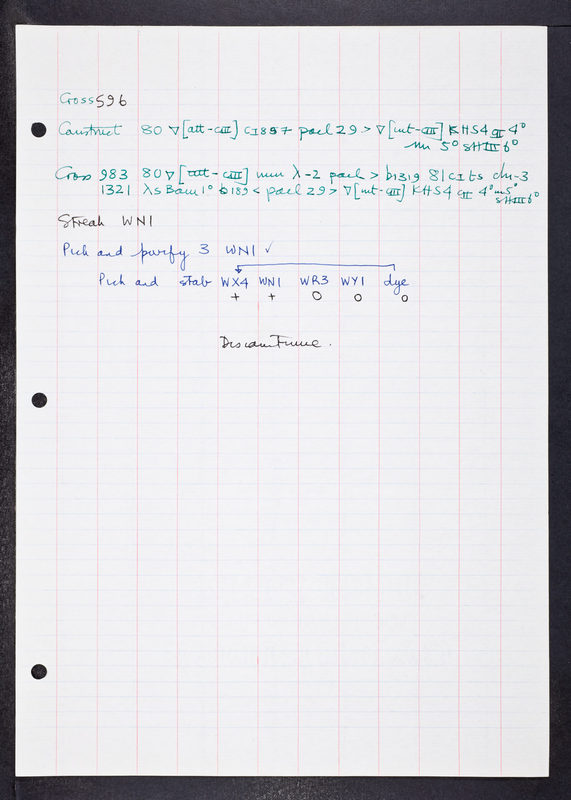 Cross 596
Construct 80 ∇ [att-cIII] cI857 pael 29 > ∇ [int-cIII] KHS4 cII 4°
nin 5° sHIII 6°
Cross 983 80 ∇ [att-cIII] nin λ-2 pael > b1319 81 cI ts chi-3
1321 λs Bam 1° b189 < pael 29 > ∇ [int-cIII] KHS4 cII 4° nin 5°
sHIII 6°
Streak WN1
Pick and purify 3 WN1 ✓
Pick and stab WX4 WN1 WR3 WY1 dye
+ + O O O
Discontinue.